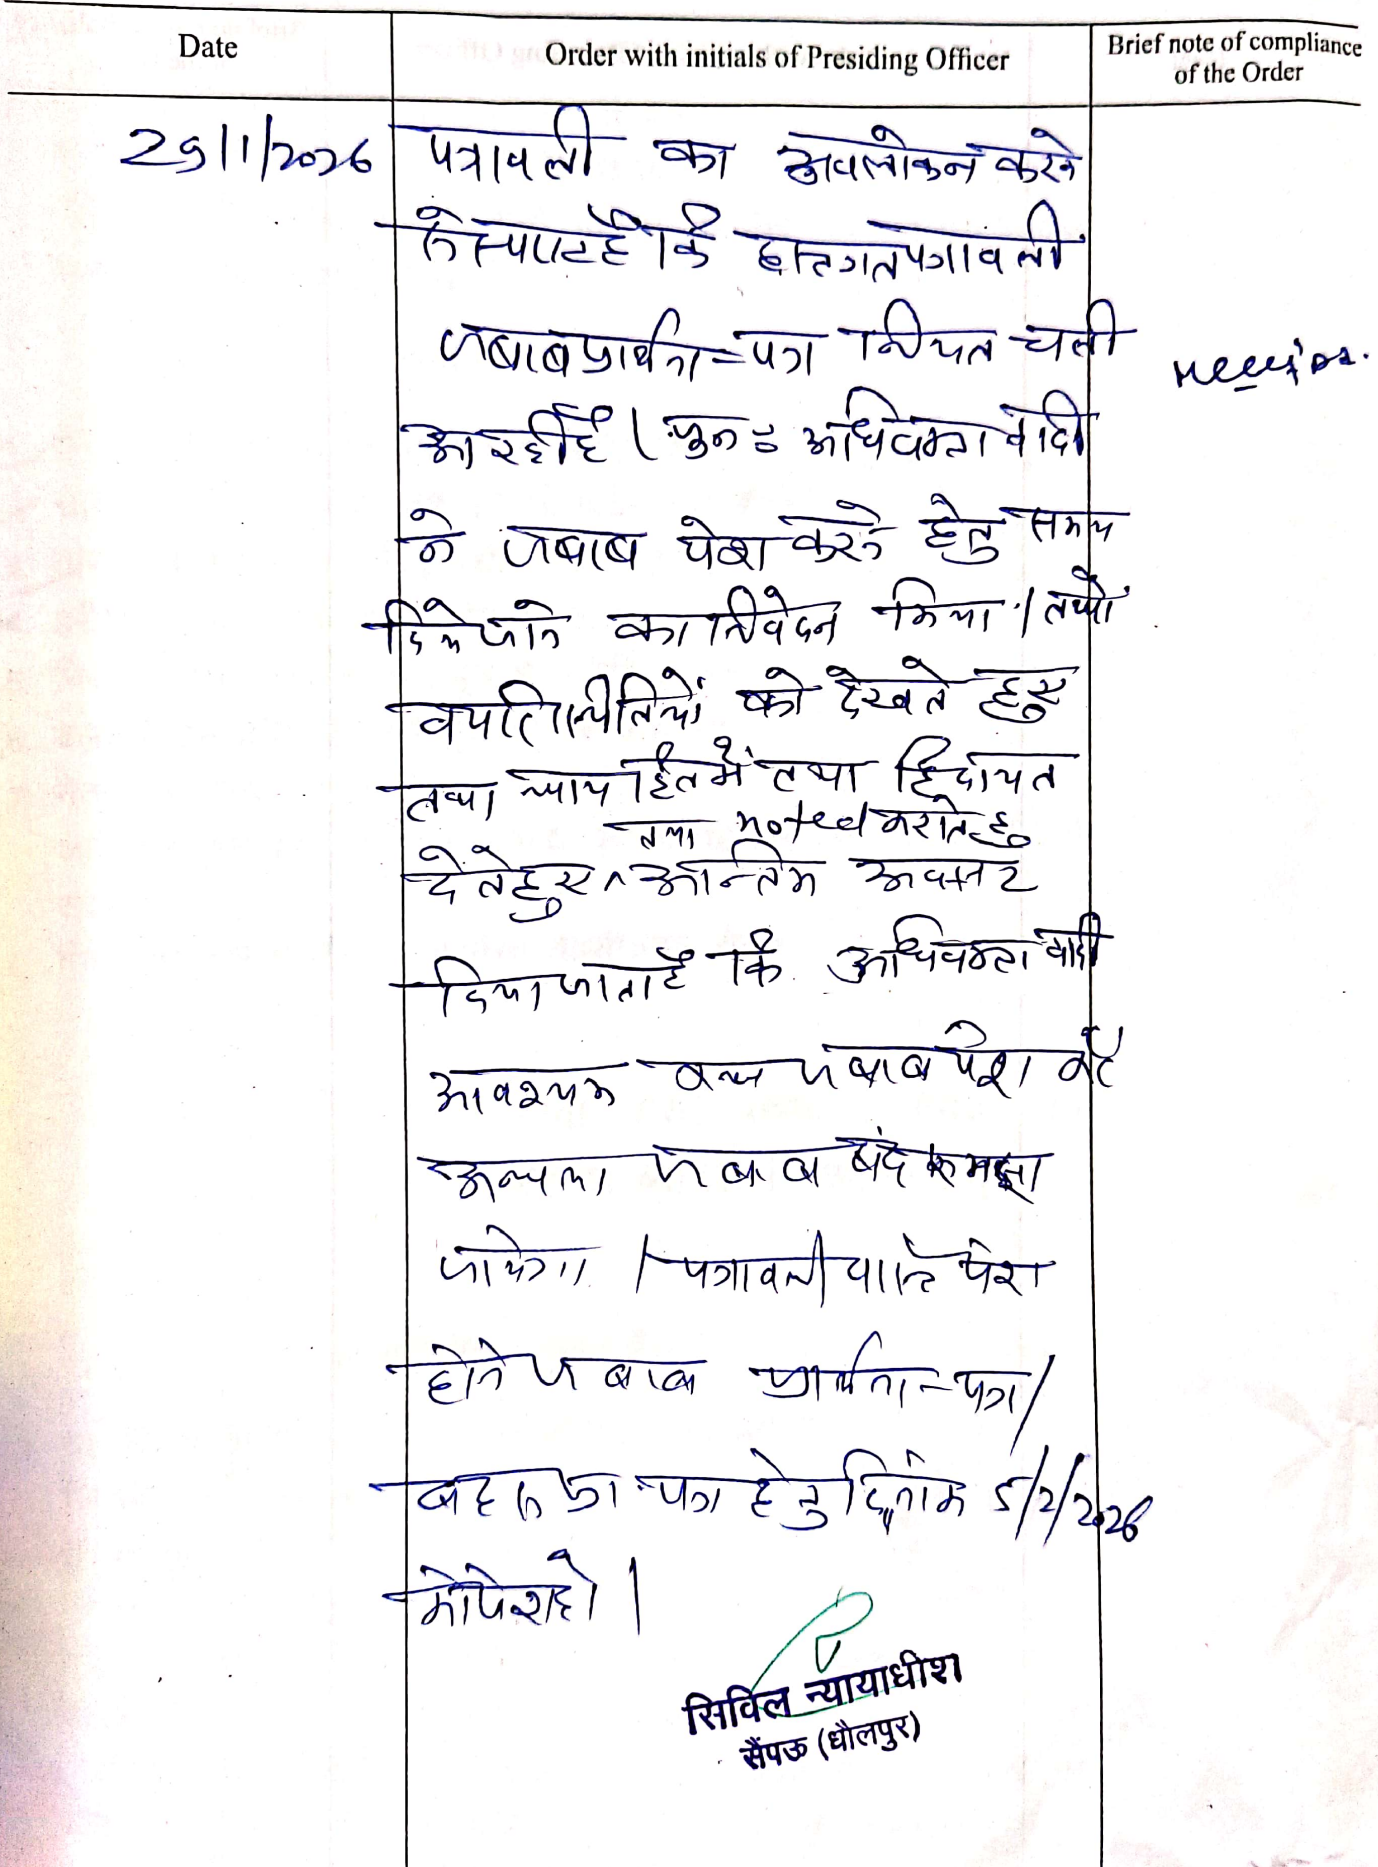 Date
Order with initials of Presiding Officer
Brief note of compliance
of the Order
29/1/2026 पत्रावली का अवलोकन करने
से स्पष्ट है कि हस्तगत पत्रावली
जबाब प्रार्थना-पत्र नियत चली
आ रही है। पुनः अधिवक्ता वादी
ने जबाब पेश करने हेतु समय
दिये जाने का निवेदन किया। तथ्यों
व परिस्थितियों को देखते हुए
तथा न्याय हित में तथा हिदायत
तथा noted कराते हुए
देते हुए ^ अन्तिम अवसर
दिया जाता है कि अधिवक्ता वादी
आवश्यक रूप जबाब पेश करें
अन्यथा जबाब बंद समझा
जायेगा। पत्रावली वास्ते पेश
होने जबाब प्रार्थना-पत्र/
बहस प्रा.पत्र हेतु दिनांक 5/2/2026
को पेश हो।
सिविल न्यायाधीश
सैंपऊ (धौलपुर)